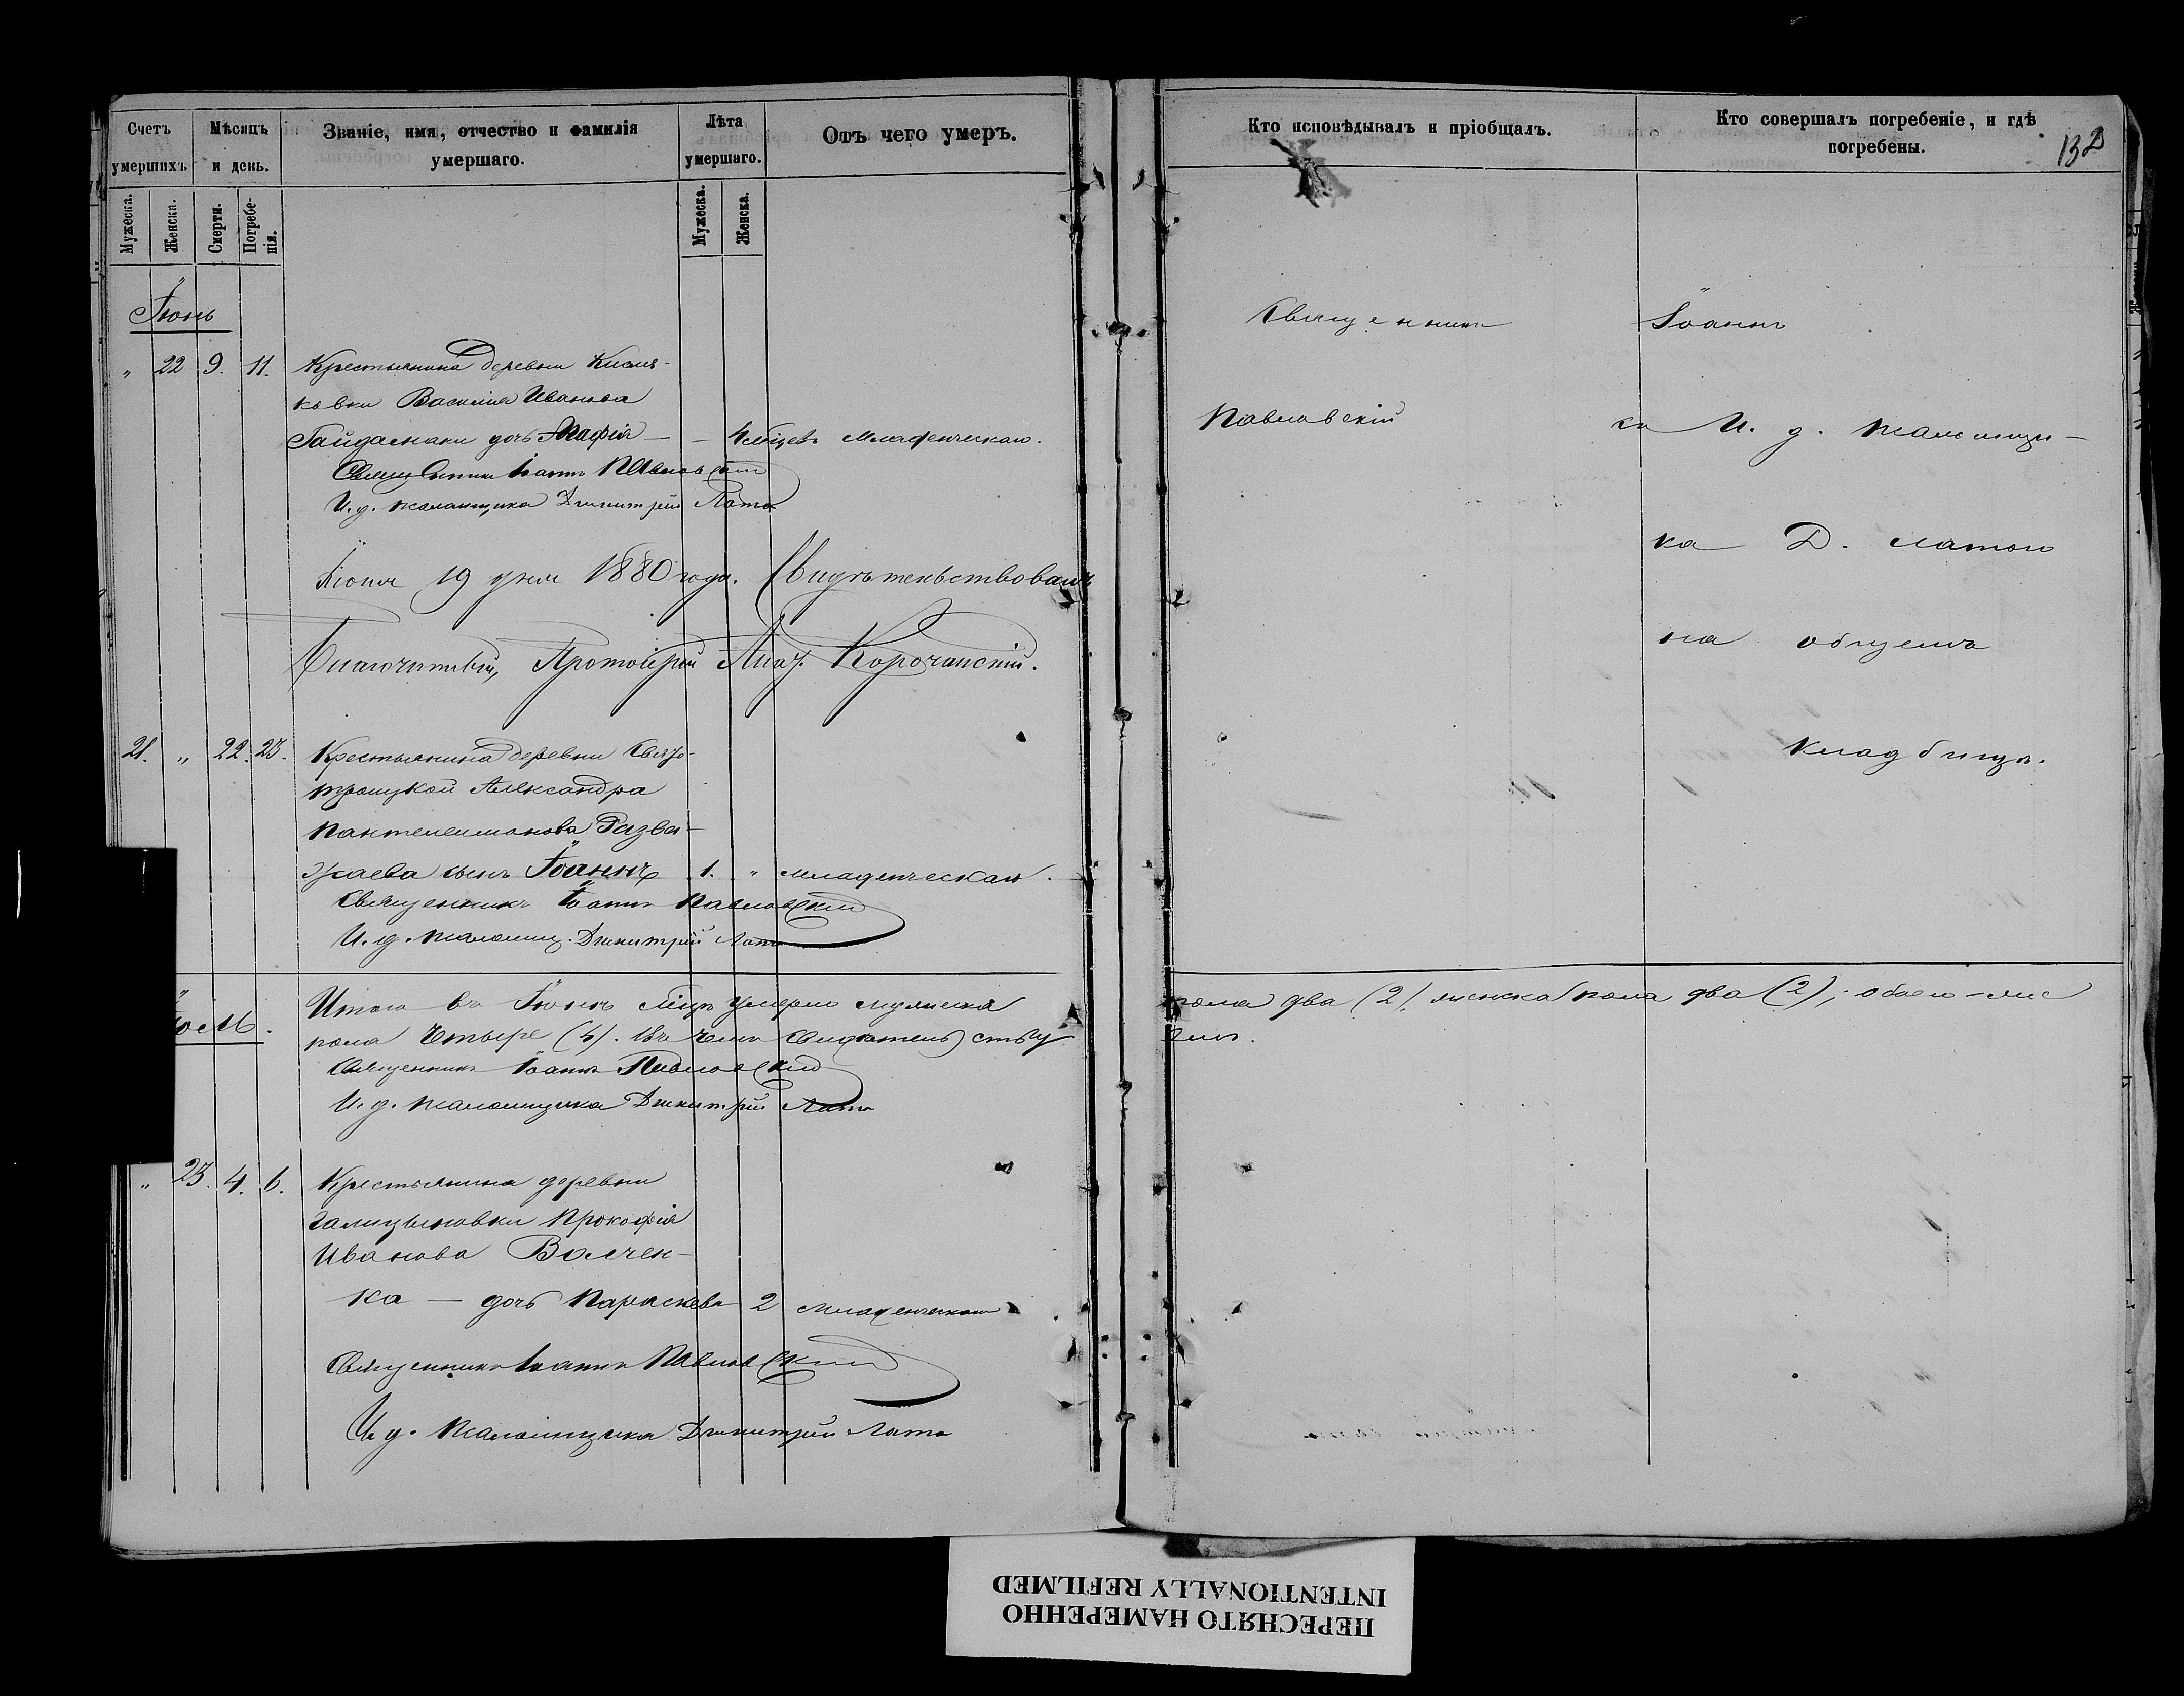 Счетъ умершихъ.
Мѣсяцъ и день.
Званіе, имя, отчество и фамилія умершаго.
Лѣта умершаго.
Отъ чего умеръ.
Кто исповѣдывалъ и пріобщалъ.
Кто совершалъ погребеніе, и гдѣ погребены.
132
Мужеска.
Женска.
Смерти.
Погребе-
нія.
Мужеска.
Женска.
Іюнь
" 22 9. 11. Крестьянина деревни Кисля-
ковки Василія Иванова
Гайдамаки дочь — — 4 мѣсцевъ Младенческою.
Священникъ Іоаннъ Павловскій
И. д. псаломщика Димитрій Лата
Іюня 19 дня 1880 года. Свидѣтельствовалъ
Благочинный, Протоіерей Корочанскій.
21. " 22. 23. Крестьянина деревни Свято-
троицкой Александра
Пантелеимонова Разва-
жаева сынъ Іоаннъ 1. " младенческою.
Священникъ Іоаннъ Павловскій
И. д. псаломщ. Димитрій Лата
Итого въ Іюнѣ мцѣ умерло мужеска
пола два (2), женска пола два (2), обоего —
пола четыре (4). Въ чемъ свидѣтельству
емъ.
Священникъ Іоаннъ Павловскій
И. д. псаломщика Димитрій Лата
" 23. 4. 6. Крестьянина деревни
Галицыновки Прокофія
Иванова Волчен-
ка — дочь Параскева 2 младенческою
Священникъ Іоаннъ Павловскій
И. д. псаломщика Димитрій Лата
Священникъ Іоаннъ
Павловскій съ И. д. псаломщи-
ка Д. Латою
на общемъ
кладбищѣ.
ПЕРЕСНЯТО НАМЕРЕННО
INTENTIONALLY REFILMED